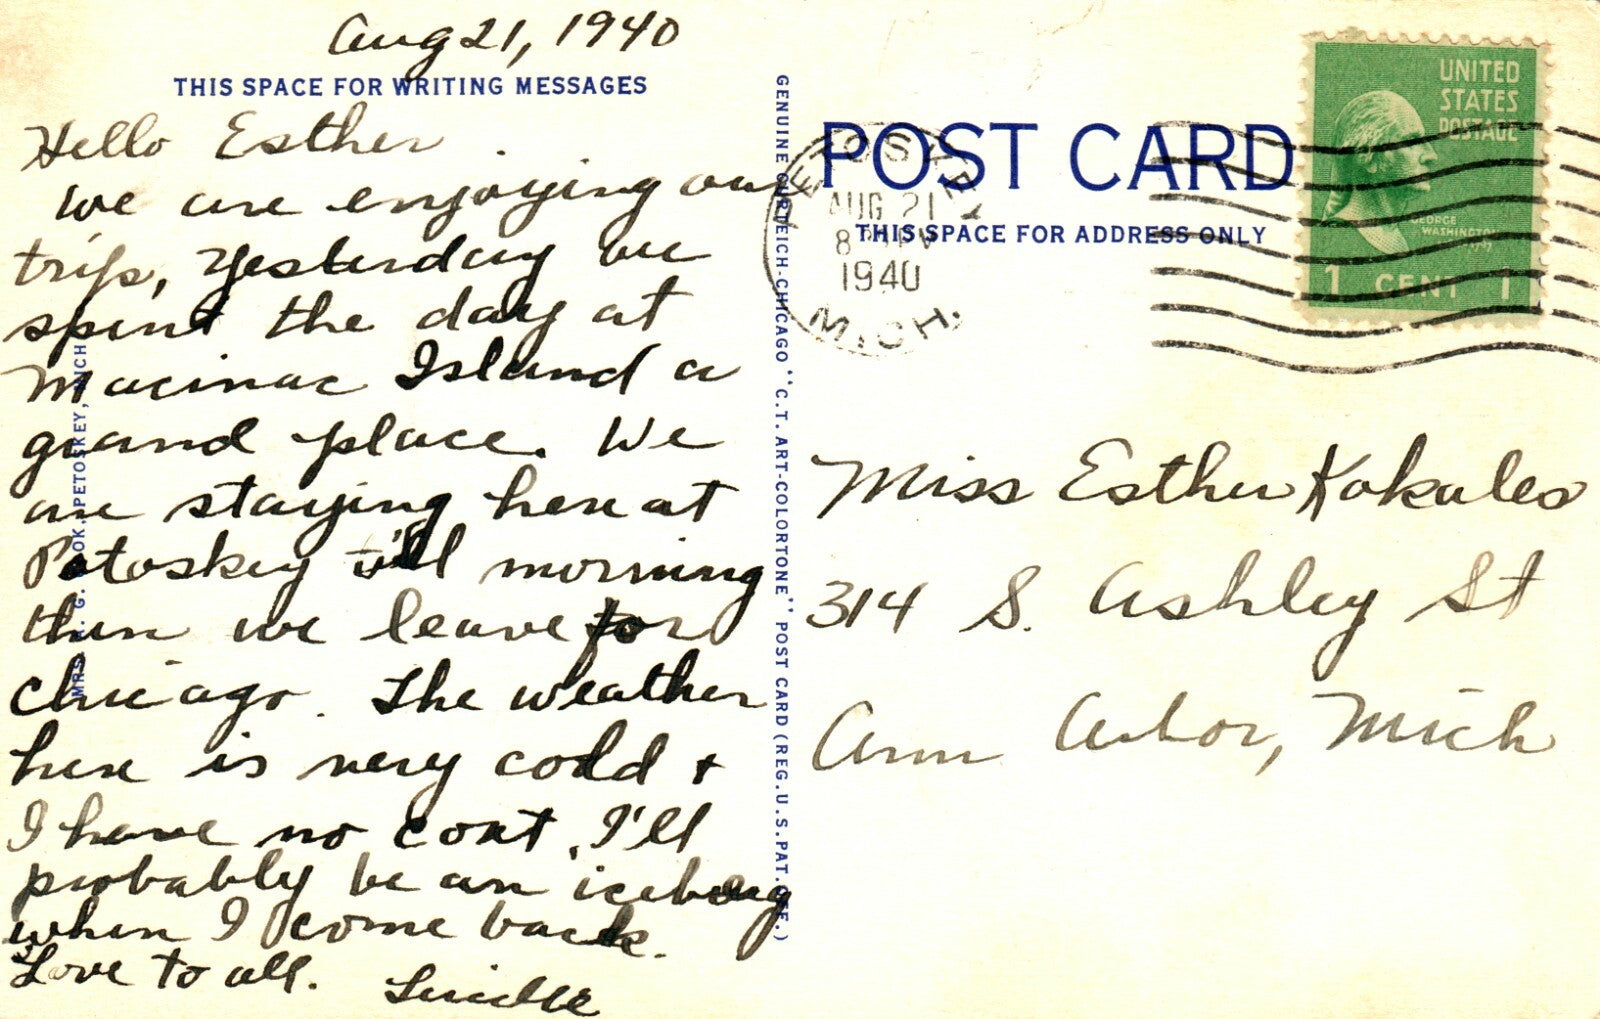 Aug 21, 1940
THIS SPACE FOR WRITING MESSAGES
Hello Esther.
We are enjoying our
trip, Yesterday we
spent the day at
Macinac Island a
grand place. We
are staying here at
Petoskey till morning
then we leave for
Chicago. The weather
here is very cold +
I have no coat. I'll
probably be an iceberg
when I come back.
Love to all. Lucille
MRS. G. COOK, PETOSKEY, MICH
GENUINE CURTEICH-CHICAGO "C.T. ART-COLORTONE" POST CARD (REG. U.S. PAT. OFF.)
POST CARD
THIS SPACE FOR ADDRESS ONLY
PETOSKEY
AUG 21
8 PM
1940
MICH.
UNITED
STATES
POSTAGE
GEORGE
WASHINGTON
1 CENT 1
Miss Esther Kokales
314 S. Ashley St
Ann Arbor, Mich